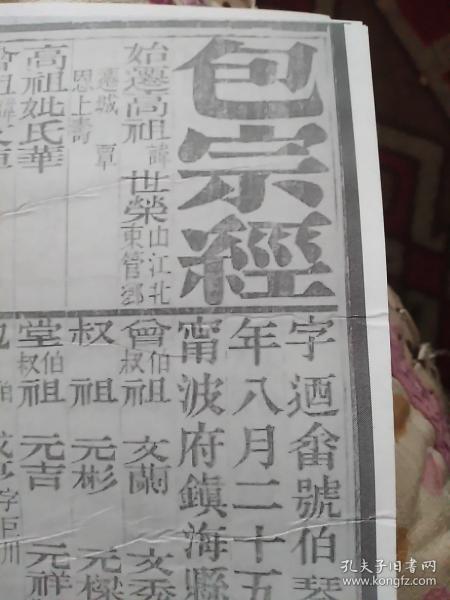 包宗經
字迺畬號伯琴
年八月二十五
甯波府鎮海縣
始遷高祖諱世榮
山江北
東管鄉
遷城
恩上壽
高祖妣氏華
曾伯叔祖 文蘭
叔祖 元彬 元樑
堂伯叔祖 元吉 元祥
字巨川
孔夫子旧书网
www.kongfz.com